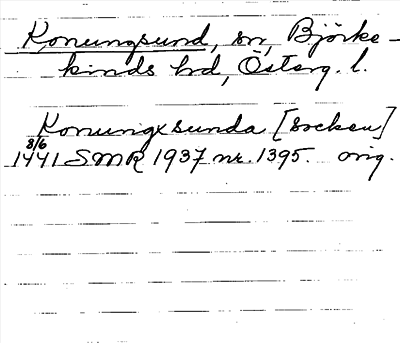 Konungsund, sn, Björke-
kinds hd, Österg. l.
Konungxsunda [socken]
8/6
1441 SMR 1937 nr. 1395. orig.